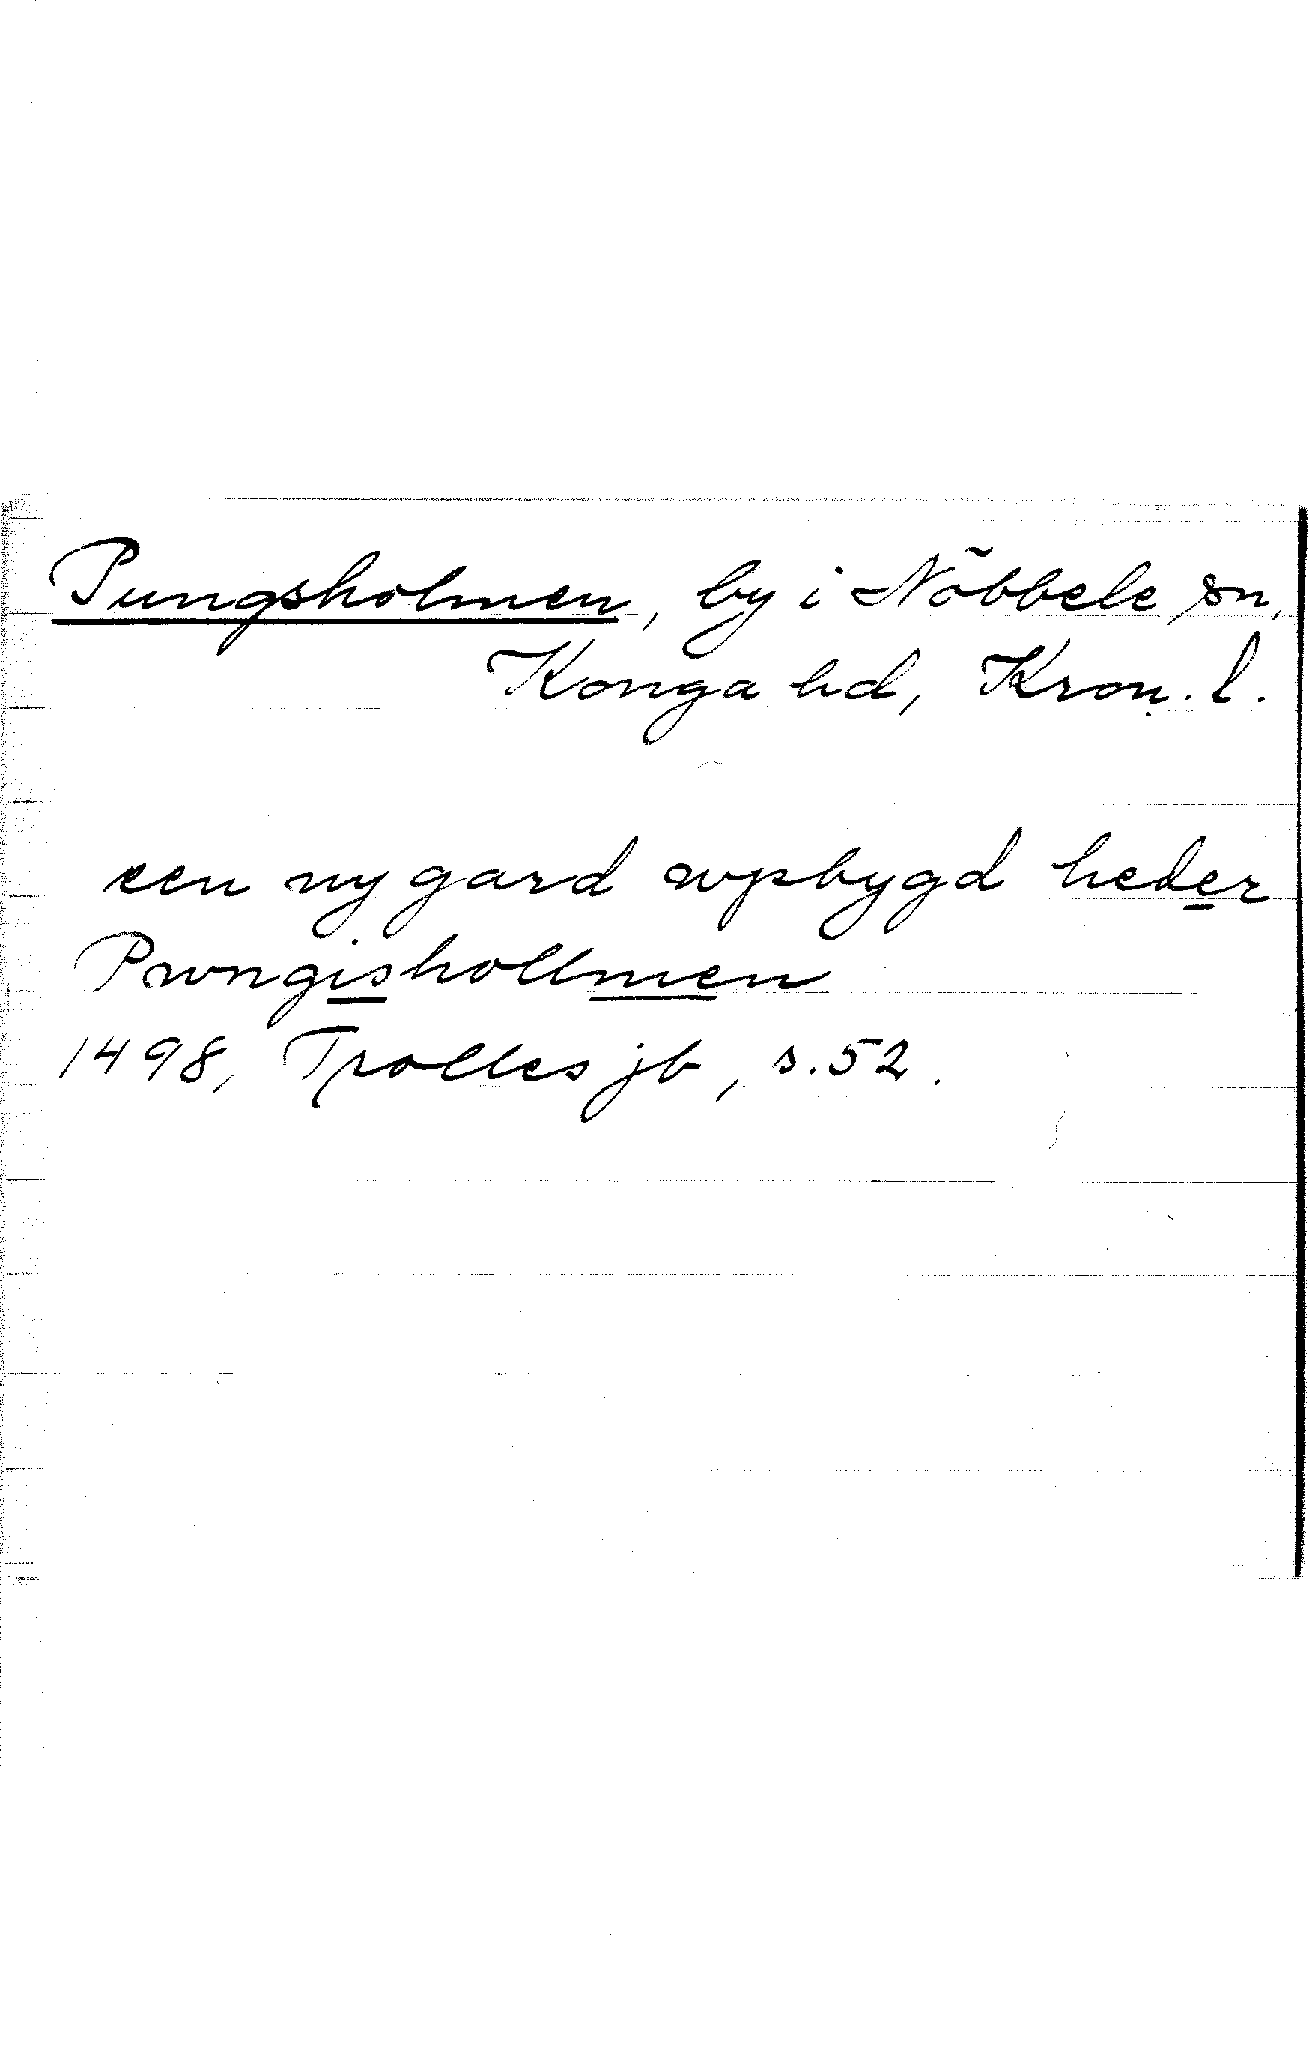 Pungsholmen, by i Nöbbele sn,
Konga hd, Kron. l.
een ny gard wpbygd heder
Pwngishollmen
1498, Trolles jb, s. 52.